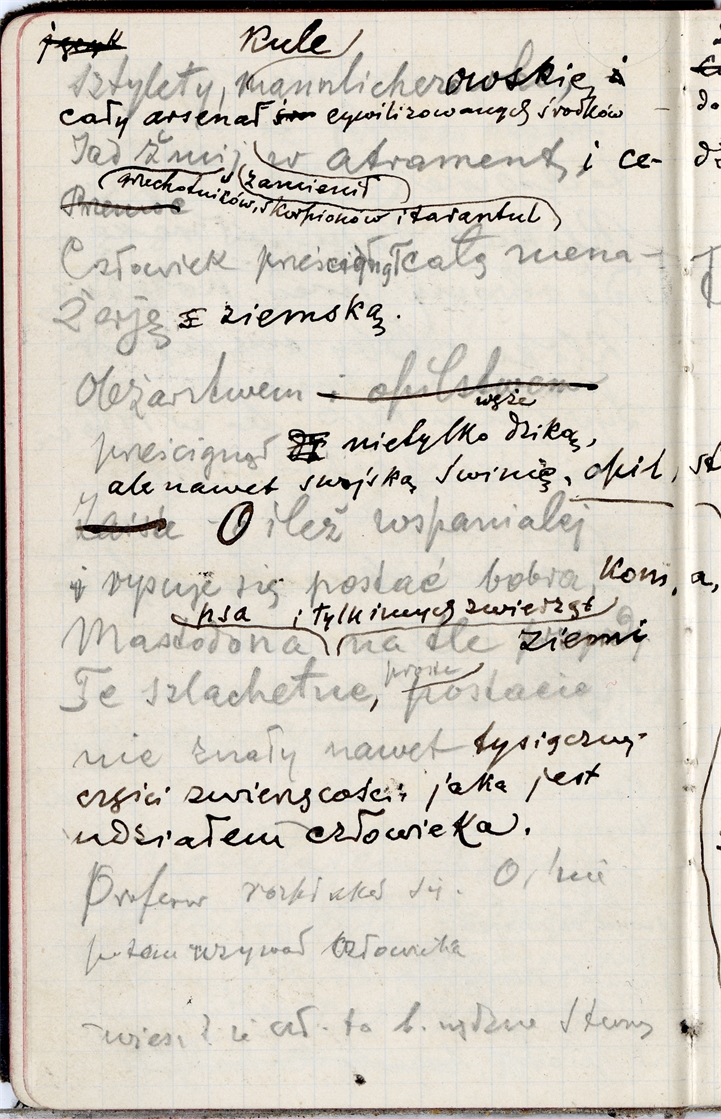 język kule
sztylety, mannlicherowskie i
cały arsenał cywilizowanych środków
Jad żmij w atrament, i ce-
grzechotników, skorpionów i tarantul zamienił
Człowiek prześcignął całą mena-
żerję ziemską.
Obżarstwem i opilstwem
prześcignął nietylko dziką, węże
ale nawet swojską świnię, opil
O ileż wspanialej
i rysuje się postać bobra, konia,
psa i tylk innych zwierząt
Mastodona na tle ziemi
Te szlachetne, proste postacie
nie znały nawet tysiączny-
części zwierzęcości, jaka jest
udziałem człowieka.
Profesor rozpłakał się.
potem wzywał człowieka
to b.